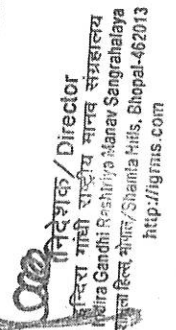 निदेशक/Director
इन्दिरा गांधी राष्ट्रीय मानव संग्रहालय
Indira Gandhi Rashtriya Manav Sangrahalaya
शामला हिल्स, भोपाल/Shamla Hills, Bhopal-462013
http://igrms.com